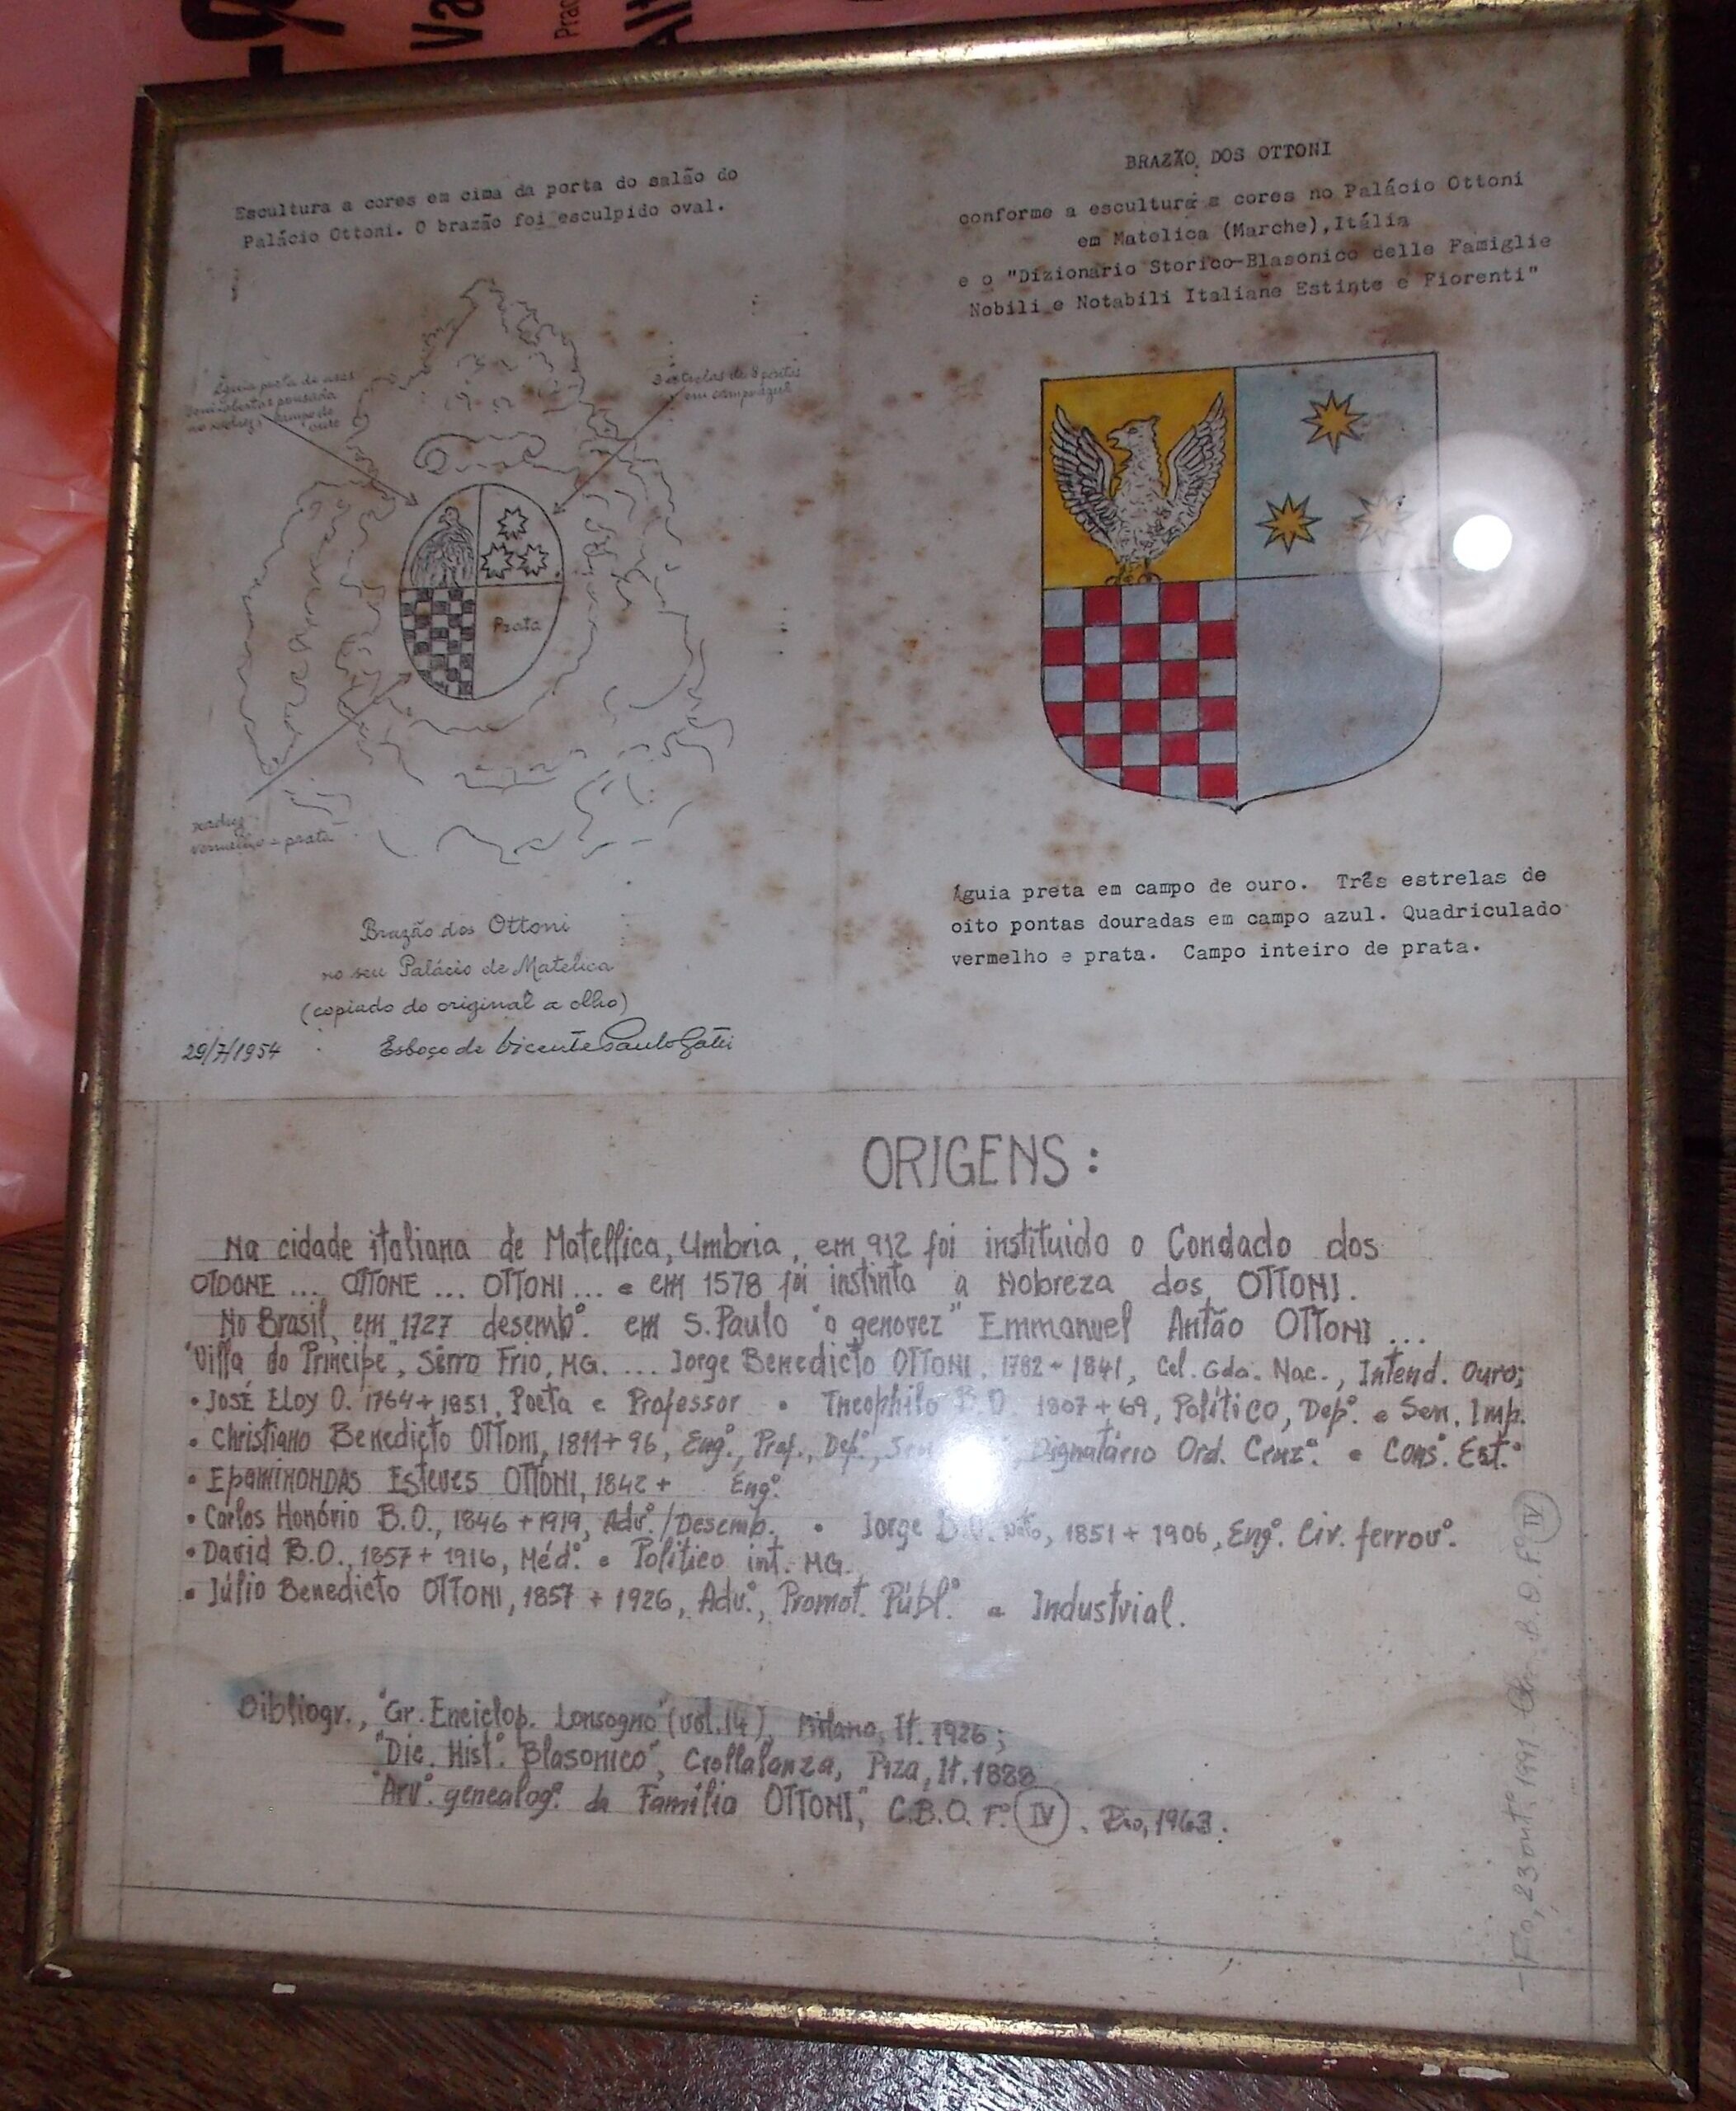 Escultura a cores em cima da porta do salão do
Palácio Ottoni. O brazão foi esculpido oval.
Águia preta de asas
semi-abertas pousada
no xadrez, campo de
ouro
3 estrelas de 8 pontas
em campo azul
Prata
xadrez
vermelho e prata
Brazão dos Ottoni
no seu Palácio de Matelica
(copiado do original a olho)
29/7/1954
Esboço de Vicente Paulo
BRAZÃO DOS OTTONI
conforme a escultura a cores no Palácio Ottoni
em Matelica (Marche),Itália
e o "Dizionario Storico-Blasonico delle Famiglie
Nobili e Notabili Italiane Estinte e Fiorenti"
Águia preta em campo de ouro. Três estrelas de
oito pontas douradas em campo azul. Quadriculado
vermelho e prata. Campo inteiro de prata.
ORIGENS:
Na cidade italiana de Matellica, Umbria, em 912 foi instituido o Condado dos
OTDONE ... OTTONE ... OTTONI ... e em 1578 foi instinta a Nobreza dos OTTONI.
No Brasil, em 1727 desembº. em S. Paulo "o genovez" Emmanuel Antão OTTONI ...
"Villa do Principe", Sêrro Frio, MG. ... Jorge Benedicto OTTONI, 1782 + 1841, Cel. Gda. Nac., Intend. Ouro;
• JOSÉ ELOY O. 1764 + 1851, Poeta e Professor • Theophilo B.O. 1807 + 69, Político, Depº. e Sen. Imp.
• Christiano Benedicto OTTONI, 1811 + 96, Engº., Prof., Depº., Dignatário Ord. Cruzº. e Consº. Estº
• Epaminondas Esteves OTTONI, 1842 + Engº.
• Carlos Honório B.O., 1846 + 1919, Advº./Desemb. • Jorge B.O. Neto, 1851 + 1906, Engº. Civ. ferrovº.
• David B.O., 1857 + 1916, Médº. e Politico int. MG.
• Júlio Benedicto OTTONI, 1857 + 1926, Advº., Promot. Públº. e Industrial.
Bibliogr., "Gr. Enciclop. Lonsogno" (vol.14), Milano, It. 1926;
"Dic. Histº. Blasonico", Crollalanza, Piza, It. 1888
"Arvº. genealogª. da Família OTTONI", C.B.O. Fº. IV. Rio, 1963.
23 outº, 1991 B.O. Fº IV
-9
Va
Prac
Alt